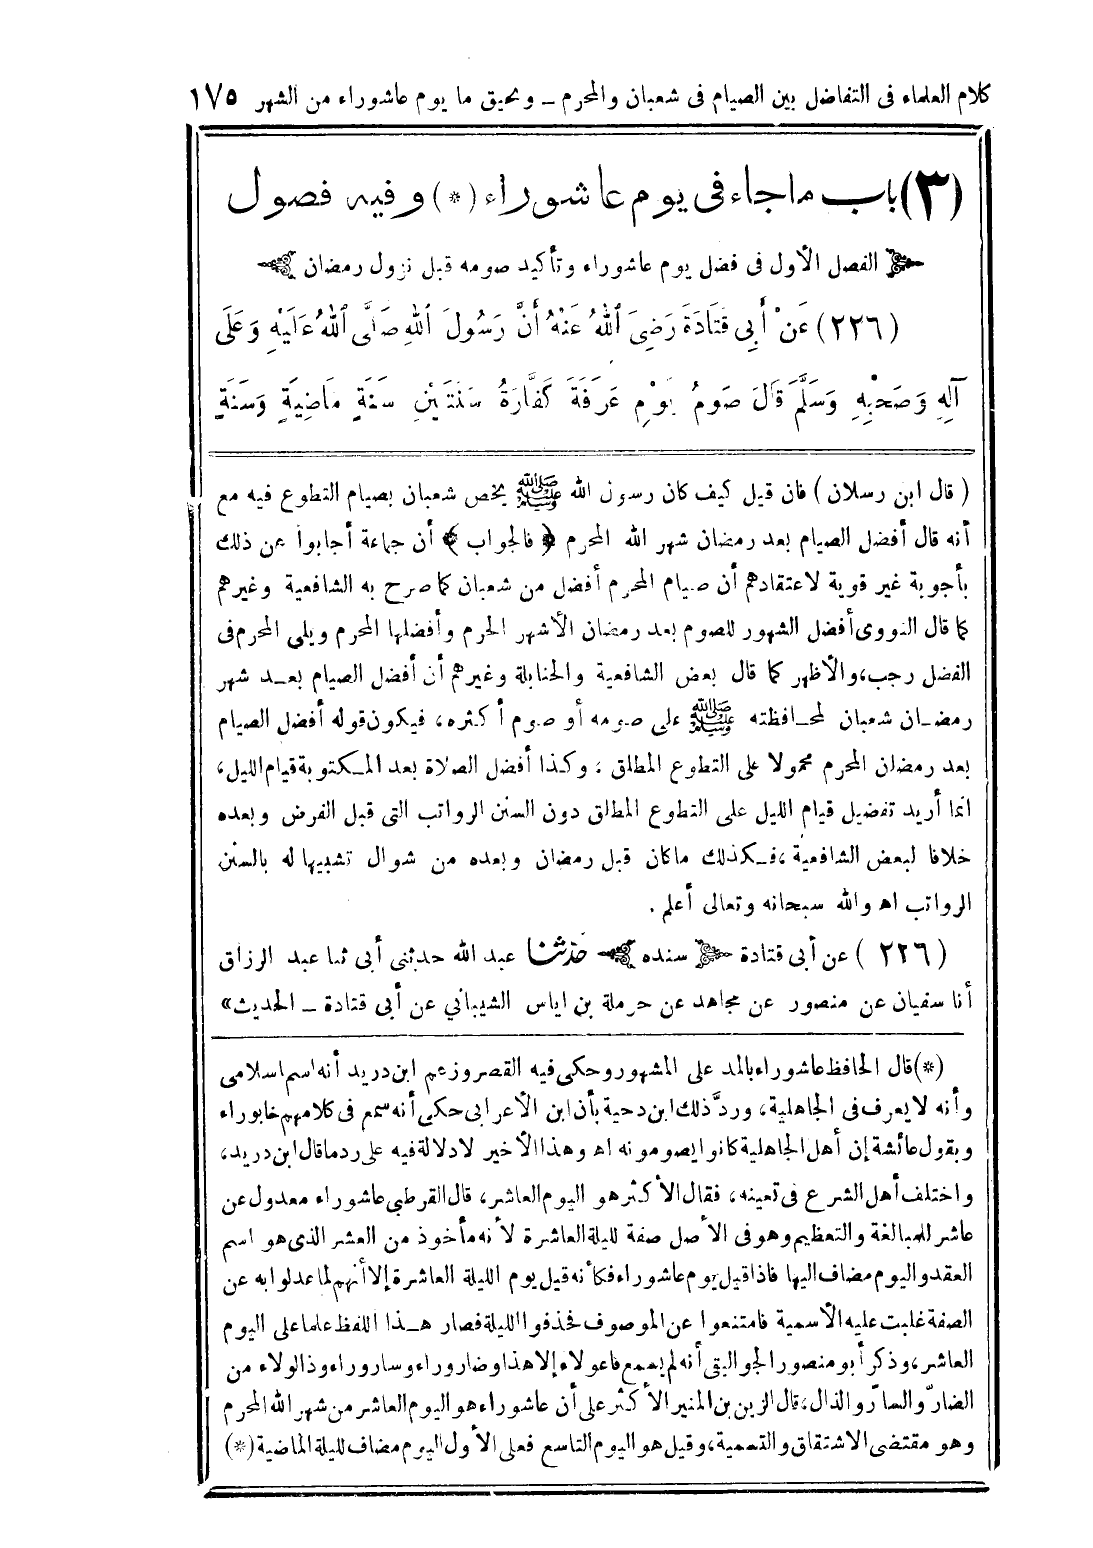 كلام العلماء فى التفاضل بين الصيام فى شعبان والمحرم ــ وتحيق ما يوم عاشوراء من الشهر ١٧٥
(٣) باب ما جاء فى يوم عاشوراء (*) وفيه فصول
الفصل الأول فى فضل يوم عاشوراء وتأكيد صومه قبل نزول رمضان
(٢٢٦) عَنْ أَبِى قَتَادَةَ رَضِىَ اللهُ عَنْهُ أَنَّ رَسُولَ اللهِ صَلَّى اللهُ عَلَيْهِ وَعَلَى
آلِهِ وَصَحْبِهِ وَسَلَّمَ قَالَ صَومُ يَوْمِ عَرَفَةَ كَفَّارَةُ سَنَتَيْنِ سَنَةٍ مَاضِيَةٍ وَسَنَةٍ
( قال ابن رسلان ) فان قيل كيف كان رسول الله ﷺ يخص شعبان بصيام التطوع فيه مع
أنه قال أفضل الصيام بعد رمضان شهر الله المحرم ﴿ فالجواب ﴾ أن جماعة أجابوا عن ذلك
بأجوبة غير قوية لاعتقادهم أن صيام المحرم أفضل من شعبان كما صرح به الشافعية وغيرهم
كما قال النووى أفضل الشهور للصوم بعد رمضان الأشهر الحرم وأفضلها المحرم ويلى المحرم فى
الفضل رجب، والأظهر كما قال بعض الشافعية والحنابلة وغيرهم أن أفضل الصيام بعـد شهر
رمضـان شعبان لمحـافظته ﷺ على صومه أو صوم أكثره، فيكون قوله أفضل الصيام
بعد رمضان المحرم محمولا على التطوع المطلق ، وكذا أفضل الصلاة بعد المـكتوبة قيام الليل،
انما أريد تفضيل قيام الليل على التطوع المطلق دون السنن الرواتب التى قبل الفرض وبعده
خلافا لبعض الشافعية ، فـكذلك ما كان قبل رمضان وبعده من شوال تشبيها له بالسنن
الرواتب اه والله سبحانه وتعالى أعلم .
( ٢٢٦ ) عن أبى قتادة سنده حَدثنا عبد الله حدثنى أبى ثنا عبد الرزاق
أنا سفيان عن منصور عن مجاهد عن حرملة بن اياس الشيبانى عن أبى قتادة ــ الحديث»
(*) قال الحافظ عاشوراء بالمد على المشهور وحكى فيه القصر وزعم ابن دريد أنه اسم اسلامى
وأنه لا يعرف فى الجاهلية، وردَّ ذلك ابن دحية بأن ابن الأعرابى حكى أنه سمع فى كلامهم خابوراء
وبقول عائشة إن أهل الجاهلية كانوا يصومونه اه وهذا الأخير لا دلالة فيه على رد ما قال ابن دريد،
واختلف أهل الشرع فى تعيينه، فقال الأكثر هو اليوم العاشر، قال القرطبى عاشوراء معدول عن
عاشر للمبالغة والتعظيم وهو فى الأصل صفة لليلة العاشرة لأنه مأخوذ من العشر الذى هو اسم
العقد واليوم مضاف اليها فاذا قيل يوم عاشوراء فكأنه قيل يوم الليلة العاشرة إلا أنهم لما عدلوا به عن
الصفة غلبت عليه الأسمية فامتنعوا عن الموصوف فحذفوا الليلة فصار هـذا اللفظ علما على اليوم
العاشر، وذكر أبو منصور الجواليقى أنه لم يسمع فاعولاء إلا هذا وضاروراء وساروراء وذالولاء من
الضارّ والسارّ والذال، قال الزين بن المنير الأكثر على أن عاشوراء هو اليوم العاشر من شهر الله المحرم
وهو مقتضى الاشتقاق والتسمية، وقيل هو اليوم التاسع فعلى الأول اليوم مضاف لليلة الماضية (*)